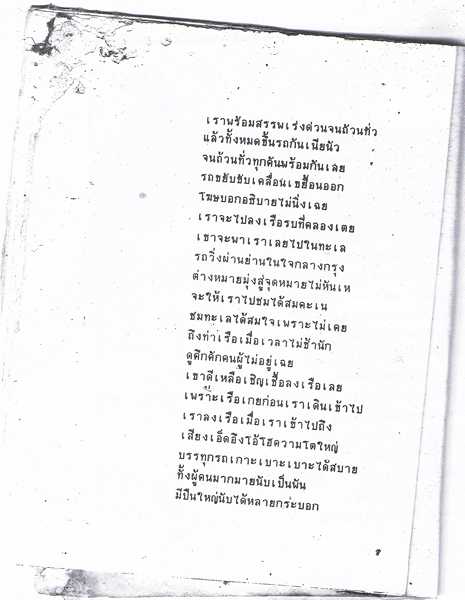 เราพร้อมสรรพเร่งด่วนจนถ้วนทั่ว
แล้วทั้งหมดขึ้นรถกันเนียนัว
จนถ้วนทั่วทุกคันพร้อมกันเลย
รถขยับขับเคลื่อนเขยื้อนออก
โฆษบอกอธิบายไม่นิ่งเฉย
เราจะไปลงเรือรบที่คลองเตย
เขาจะพาเราเลยไปในทะเล
รถวิ่งผ่านย่านในใจกลางกรุง
ต่างหมายมุ่งสู่จุดหมายไม่หันเห
จะให้เราไปชมได้สมคะเน
ชมทะเลได้สมใจเพราะไม่เคย
ถึงท่าเรือเมื่อเวลาไม่ช้านัก
ดูคึกคักคนผู้ไม่อยู่เฉย
เขาดีเหลือเชิญเชื้อลงเรือเลย
เพราะเรือเกยก่อนเราเดินเข้าไป
เราลงเรือเมื่อเราเข้าไปถึง
เสียงเอ็ดอึงโอ้โฮความโตใหญ่
บรรทุกรถเกาะเบาะเบาะได้สบาย
ทั้งผู้คนมากมายนับเป็นพัน
มีปืนใหญ่นับได้หลายกระบอก